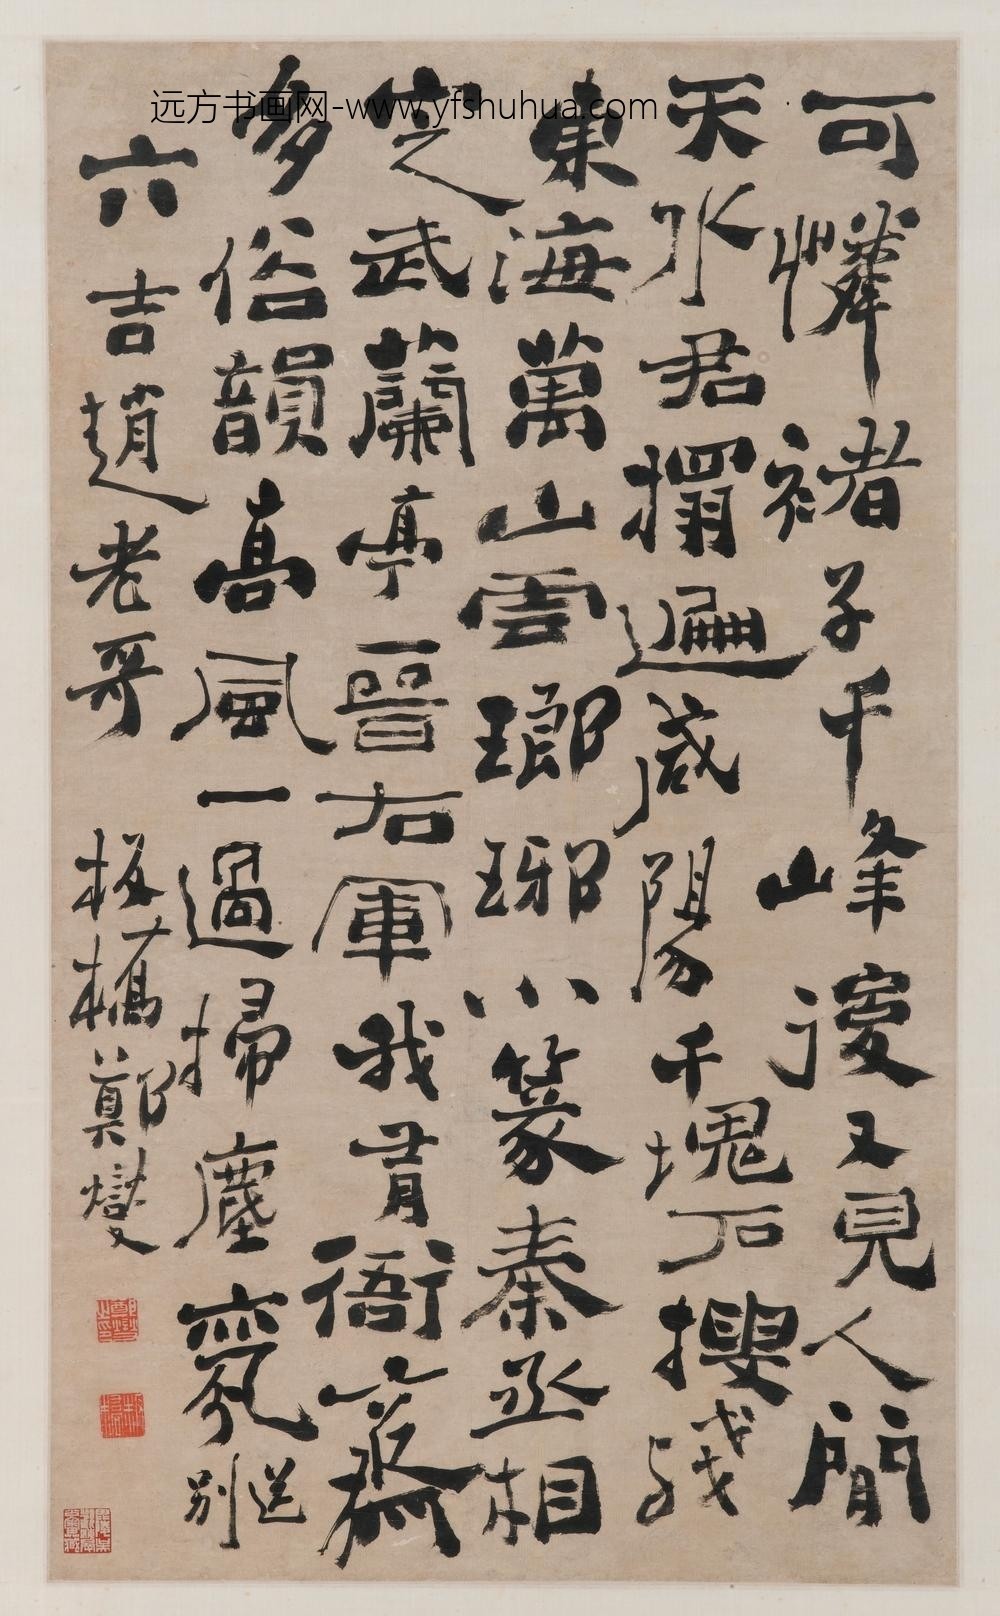 远方书画网-www.yfshuhua.com
可憐褚子千峰後又見人間
天水君搨遍咸陽千塊石搜殘
東海萬山雲瑯琊小篆秦丞相
定武蘭亭晉右軍我衙齋
多俗韻高風一過掃塵氛送別
六吉趙老哥
板橋鄭燮
鄭燮之印